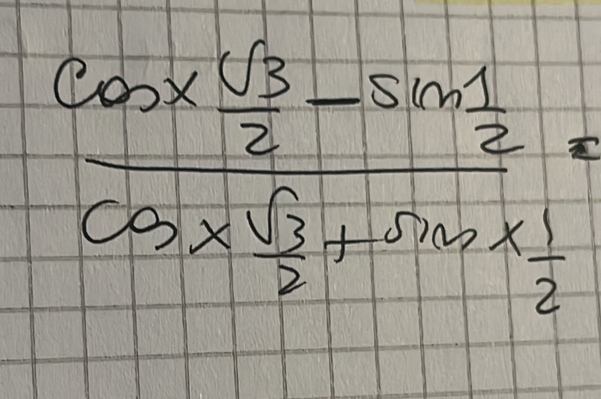 cos x √3/2 - sin 1/2 =
cos x √3/2 + sin x 1/2